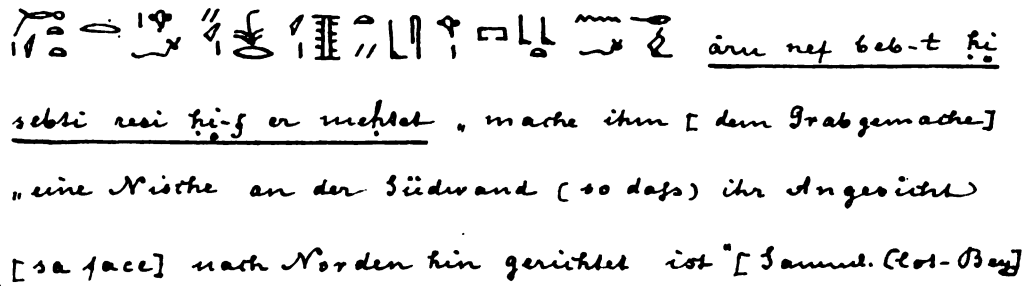 åru nef beb-t ḥị
sebti resi ḥị-f er meḥtet „mache ihm [dem Grabgemache]
„eine Nische an der Südwand (so daſs) ihr Angesicht
[sa face] nach Norden hin gerichtet ist" [Samml. Clot-Bey]